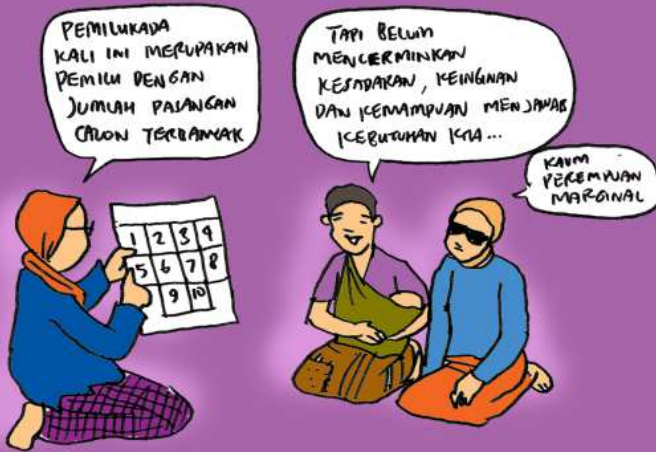 PEMILUKADA
KALI INI MERUPAKAN
PEMILU DENGAN
JUMLAH PASANGAN
CALON TERBANYAK
TAPI BELUM
MENCERMINKAN
KESADARAN, KEINGINAN
DAN KEMAMPUAN MENJAWAB
KEBUTUHAN KITA...
KAUM
PEREMPUAN
MARGINAL
1 2 3 4
5 6 7 8
9 10